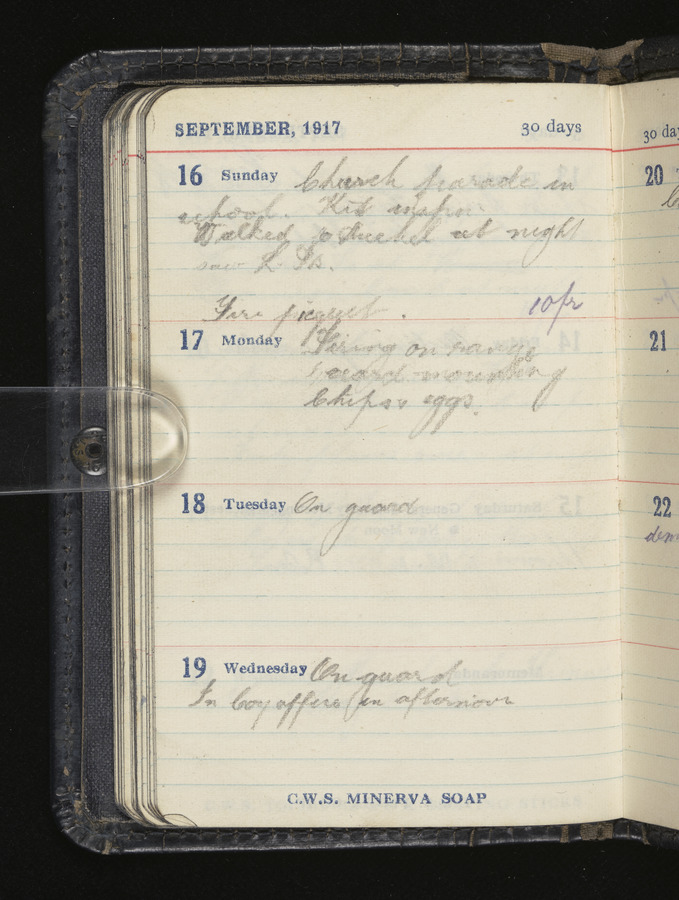 SEPTEMBER, 1917 30 days
16 Sunday Church parade in
school. Kit inspn
Walked to at night
saw L.
Fire picquet. 10fr
17 Monday Firing on range
Guard mounting
Chips & eggs.
18 Tuesday On guard
19 Wednesday On guard
In Coy office in afternoon
C.W.S. MINERVA SOAP
30 da
20
21
22